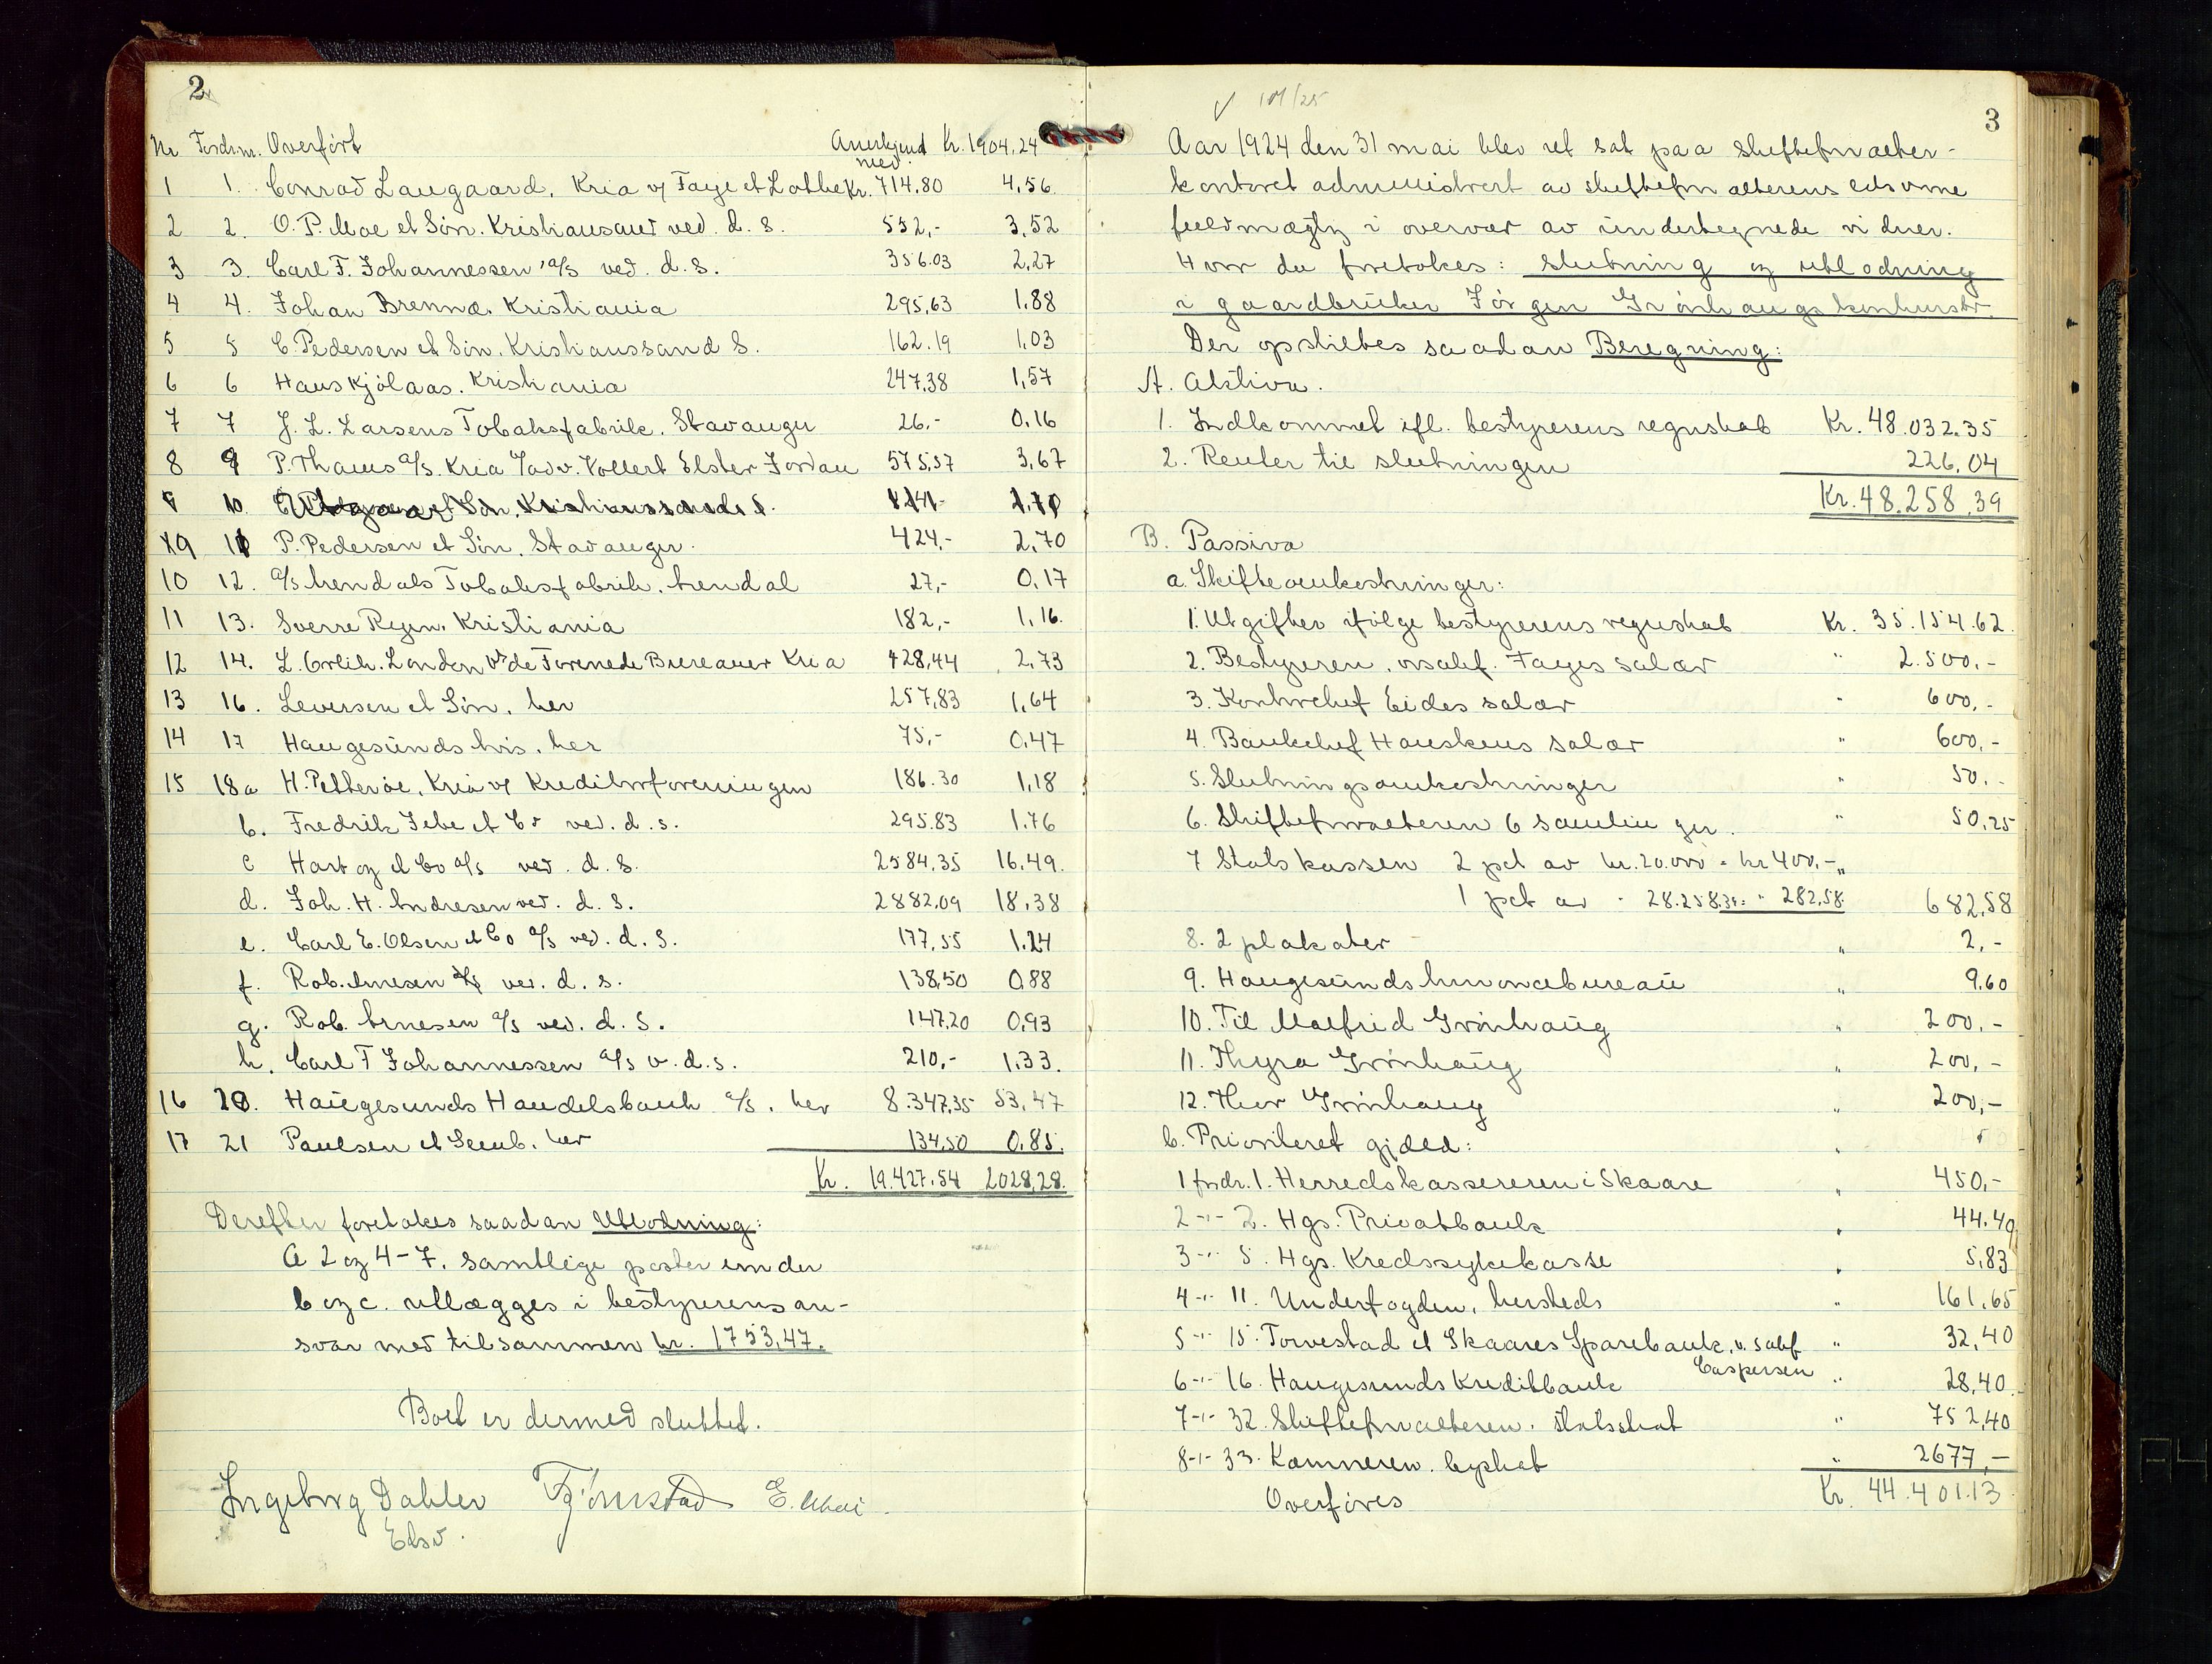 2
Nr Fordr.nr. Overført Anerkjend med: Kr. 1904.24
1 1. Conrad Langaard, Kria v/ Faye et Lothe Kr. 714,80 4,56
2 2. O. P. Moe et Søn, Kristiansand ved. d. s. 552,- 3,52
3 3. Carl F. Johannessen a/s ved. d. s. 356.03 2,27
4 4. Johan Brenna, Kristiania 295,63 1,88
5 5 C. Pedersen et Søn, Kristianssand S. 162.19 1,03
6 6 Hans Kjølaas, Kristiania 247,38 1,57
7 7 J. L. Larsens Tobaksfabrik, Stavanger 26,- 0,16
8 9 P. Thams a/s, Kria v/adv. Vollert Elster Jordan 575,57 3,67
9 11 P. Pedersen et Søn, Stavanger. 424,- 2,70
10 12. a/s Arendals Tobaksfabrik, Arendal 27,- 0,17
11 13. Sverre Rejen, Kristiania 182,- 1,16.
12 14. L. London v/ de Forenede Bureauer Kria 428,44 2,73
13 16. Leversen et Søn, her 257,83 1,64
14 17 Haugesunds Avis, her 75,- 0,47
15 18a H. Petterøe, Kria v/ Kreditorforeningen 186.30 1,18
b. Fredrik Jebe et Co ved. d. s. 295.83 1.76
c Hartog et Co a/s ved. d. s. 2584,35 16,49.
d. Joh. H. Andresen ved. d. s. 2882,09 18,38
e. Carl E. Olsen et Co a/s ved. d. s. 177,55 1.24
f. Rob. Arnesen a/s ved. d. s. 138,50 0,88
g. Rob. Arnesen a/s ved. d. s. 147,20 0,93
h. Carl F Johannessen a/s v. d. s. 210,- 1,33.
16 20. Haugesunds Handelsbank a/s, her 8.347,35 53,47
17 21 Paulsen et Semb, her 134,50 0,85.
Kr. 19.427.54 2028,28.
Derefter foretakes saadan Utlodning:
A 2 og 4-7, samtlige poster under
b og c. utlægges i bestyrerens an-
svar med tilsammen kr. 1753,47.
Boet er dermed sluttet.
Ingeborg Dahler E.
Edsv.
✓ 101/25
3
Aar 1924 den 31 mai blev ret sat paa skifteforvalter-
kontoret administrert av skifteforvalterens edsvorne
fuldmægtig i overvær av undertegnede vidner.
Hvor da foretokes: Slutning og utlodning
i gaardbruker Jørgen Grønhaugs konkursbo.
Der opstilles saadan Beregning:
A. Aktiva.
1. Indkommet ifl. bestyrerens regnskab Kr. 48.032.35
2. Renter til slutningen 226,04
Kr. 48.258,39
B. Passiva
a. Skifteomkostninger:
1. Utgifter ifølge bestyrerens regnskab Kr. 35.154.62.
2. Bestyreren, orsakf. Fayes salær " 2.500,-
3. Kontorchef Eides salær " 600,-
4. Bankchef Hauskens salær " 600,-
5. Slutningsomkostninger " 50,-
6. Skifteforvalteren 6 samlinger. " 50,25
7 Statskassen 2 pct av kr. 20.000 = kr 400,- "
1 pct av " 28.258.39 = " 282,58. 682,58
8. 2 plakater " 2,-
9. Haugesunds Annoncebureau " 9.60
10. Til Malfrid Grønhaug " 200,-
11. Thyra Grønhaug " 200,-
12. Grønhaug " 200,-
b. Prioritert gjæld: "
1 fordr. 1. Herredskassereren i Skaare " 450,-
2 -"- 2. Hgs. Privatbank " 44.40
3 -"- 5. Hgs. Kredssykekasse " 5,83
4 -"- 11. Underfogden, hersteds " 161,65
5 -"- 15. Torvestad et Skaares Sparebank, v. sakf " 32,40
Caspersen
6 -"- 16. Haugesunds Kreditbank " 28,40.
7 -"- 32. Skifteforvalteren, statsskat " 752,40
8 -"- 33. Kæmneren, byskat " 2677,-
Overføres Kr. 44.401.13